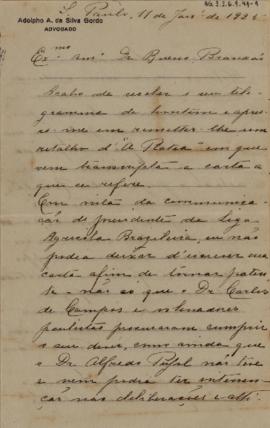 S. Paulo, 11 de Janº de 1926
Adolpho A. da Silva Gordo
ADVOGADO
Ex.mo amº Dr. Bueno Brandão
Acabo de receber o seu tele-
gramma de hontem e apres-
so-me em remetter-lhe um
retalho d'"A Platéa" em que
vem transcripta a carta a
que se refere.
Em vista da communica-
ção do presidente da Liga
Agricola Brasileira, eu não
podia deixar d'escrever uma
carta afim de tornar paten-
te - não só que o Dr. Carlos
de Campos e os senadores
paulistas procuraram cumprir
o seu dever, como ainda que
o Dr. Alfredo Pujol não teve
e nem podia ter interven-
ção nas deliberações e